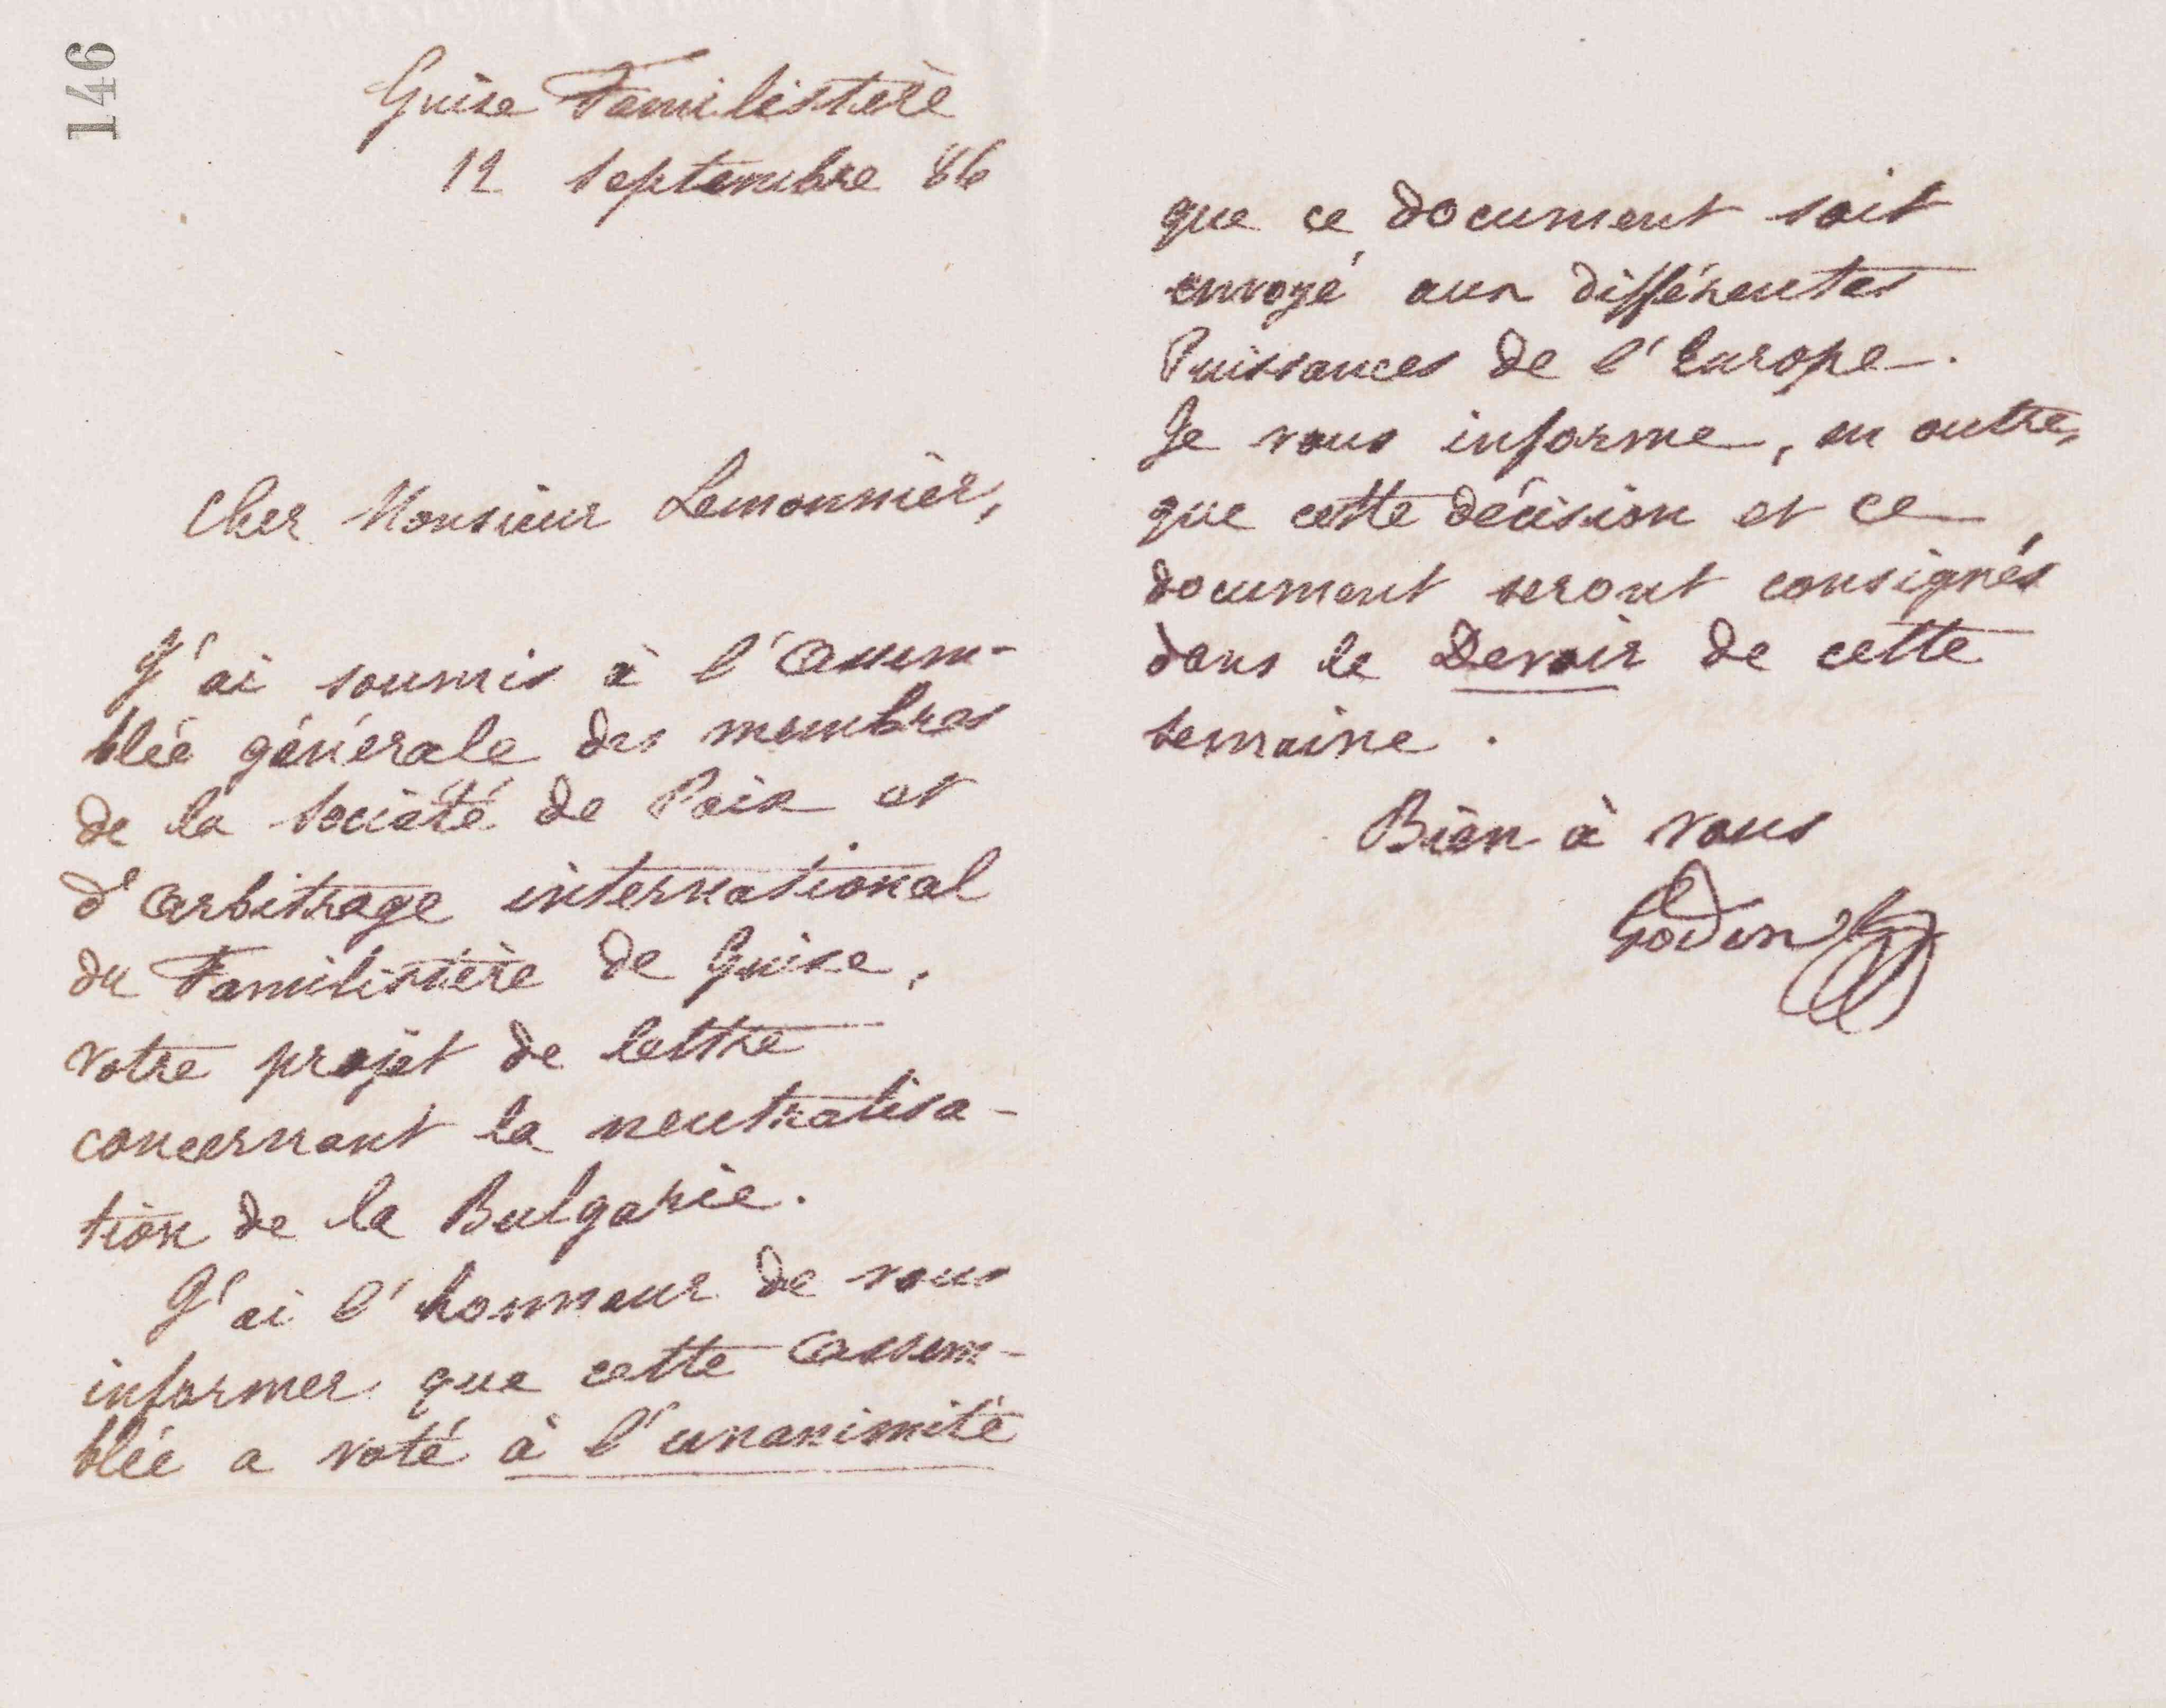 146
Guise Familistère
12 Septembre 86
Cher Monsieur Lemonnier,
J'ai soumis à l'Assem-
blée générale des membres
de la Société de Paix et
d'Arbitrage international
du Familistère de Guise,
votre projet de lettre
concernant la neutralisa-
tion de la Bulgarie.
J'ai l'honneur de vous
informer que cette Assem-
blée a voté à l'unanimité
que ce document soit
envoyé aux différentes
Puissances de l'Europe.
Je vous informe, en outre,
que cette décision et ce
document seront consignés
dans le Devoir de cette
semaine.
Bien à vous
Godin